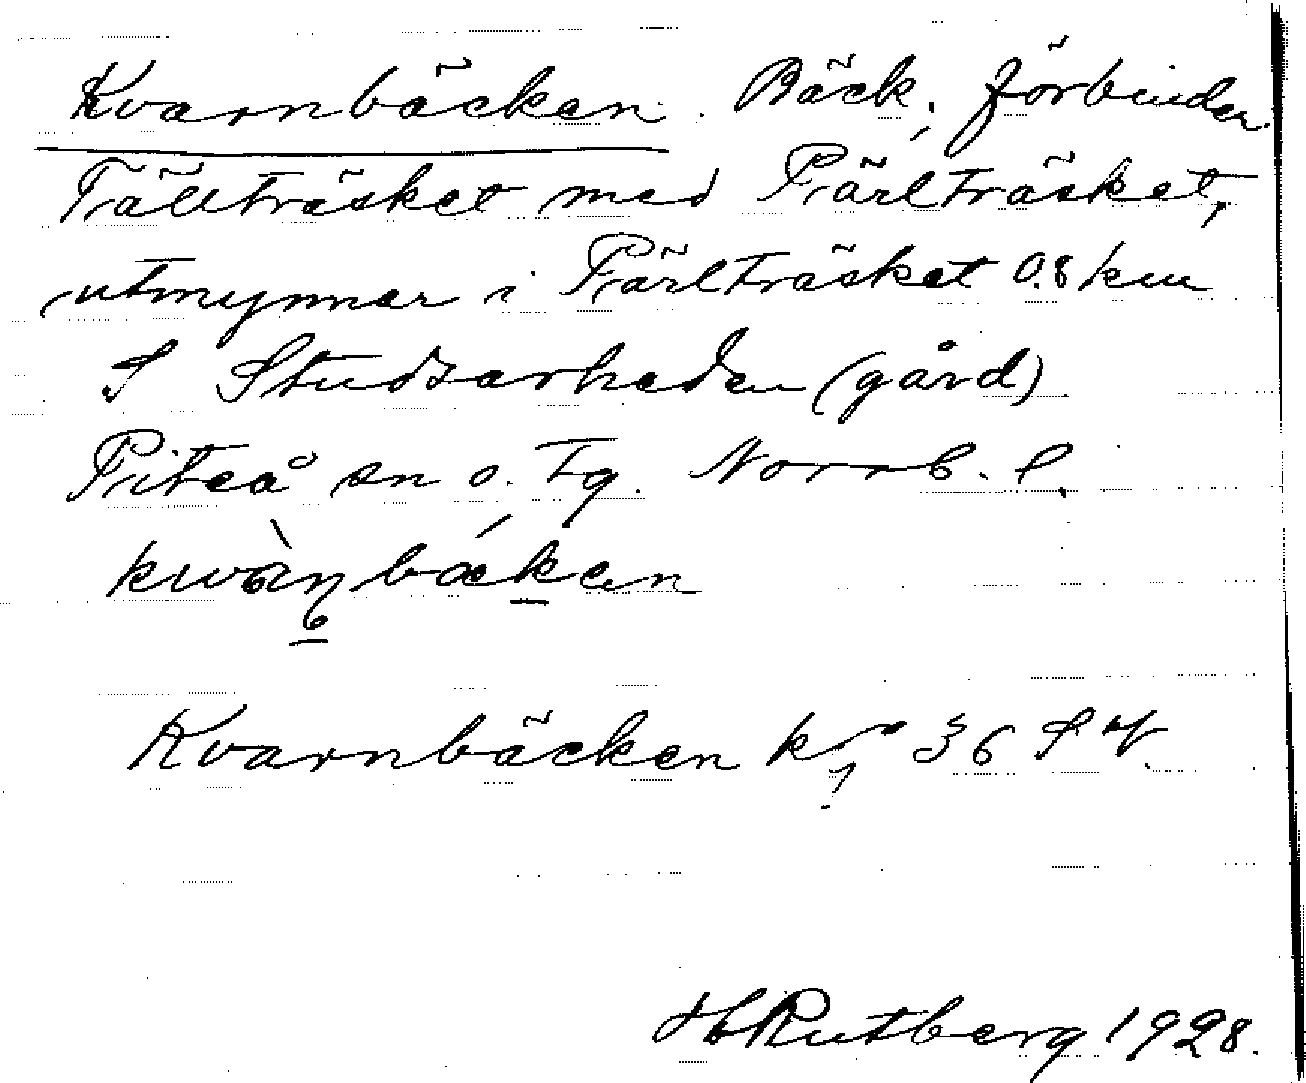 Kvarnbäcken. Bäck, förbinder
Tällträsket med Pärlträsket,
utmynnar i Pärlträsket 0.8 km
S Studsarheden (gård)
Piteå sn o. tg. Norrb. l.
Kvarnbäcken k 36 SV
H Rutberg 1928.